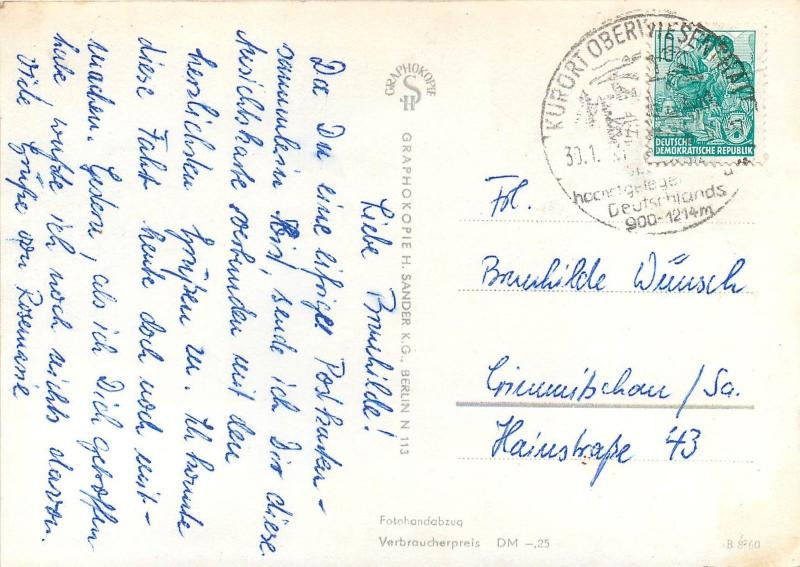 Liebe Brunhilde!
Da Du eine eifrige Postkarten-
sammlerin bist, sende ich Dir diese
Ansichtskarte verbunden mit den
herzlichsten Grüßen zu. Ich konnte
diese Fahrt heute doch noch mit-
machen. Gestern, als ich Dich getroffen
habe wußte ich noch nichts davon.
Viele Grüße von Rosemarie
GRAPHOKOPIE
H S
GRAPHOKOPIE H. SANDER K.G., BERLIN N 113
KURORT OBERWIESENTHAL
30.1.
Deutschlands
900-1214m
DEUTSCHE
DEMOKRATISCHE REPUBLIK
5
Frl.
Brunhilde Wünsch
Crimmitschau / Sa.
Hainstraße 43
Fotohandabzug
Verbraucherpreis DM -,25